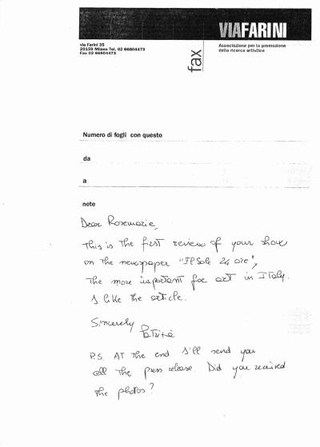 VIAFARINI
via Farini 35
20159 Milano Tel. 02 66804473
Fax 02 66804473
fax
Associazione per la promozione
della ricerca artistica
Numero di fogli con questo
da
a
note
Dear Rosemarie,
This is the first review of your show
on the newspaper "Il Sole 24 ore",
the more important for art in Italy.
I like the article.
Sincerely Patrizia
P.S AT the end I'll send you
all the press release. Did you received
the photos?